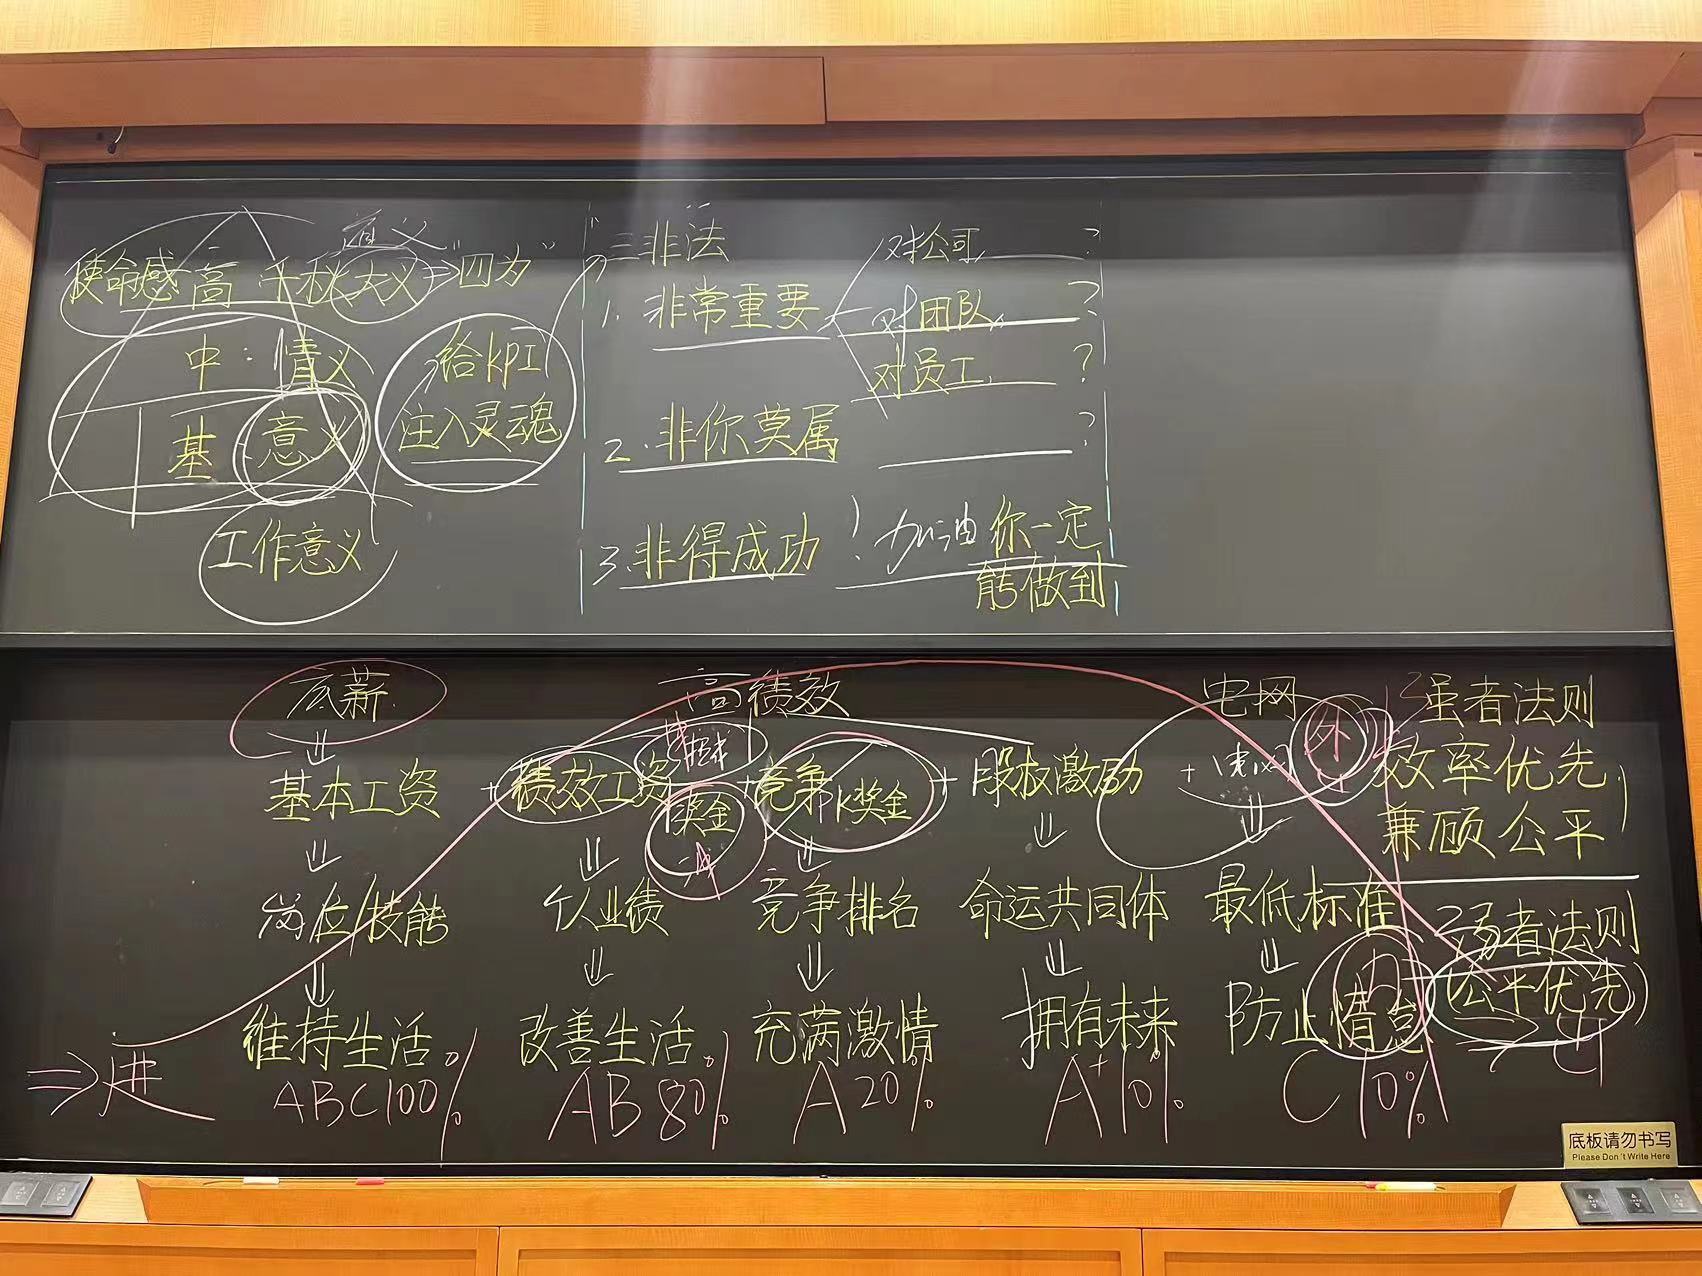 道义
使命感高 千秋大义⇒"四为"
中：情义
基 意义
工作意义
给KPI
注入灵魂
"三非法"
1. 非常重要
对公司 ?
对团队 ?
对员工 ?
2. 非你莫属 ?
3. 非得成功 ! 加油 你一定
能做到
底薪 高绩效 电网
基本工资 + 绩效工资 + 竞争PK奖金 + 股权激励 +
奖金
外
岗位/技能 个人业绩 竞争排名 命运共同体 最低标准
维持生活 改善生活 充满激情 拥有未来 防止惰怠
内
⇒进 ABC100% AB80% A20% A+10% C10%
强者法则
效率优先,
兼顾公平
弱者法则
公平优先
底板请勿书写
Please Don't Write Here